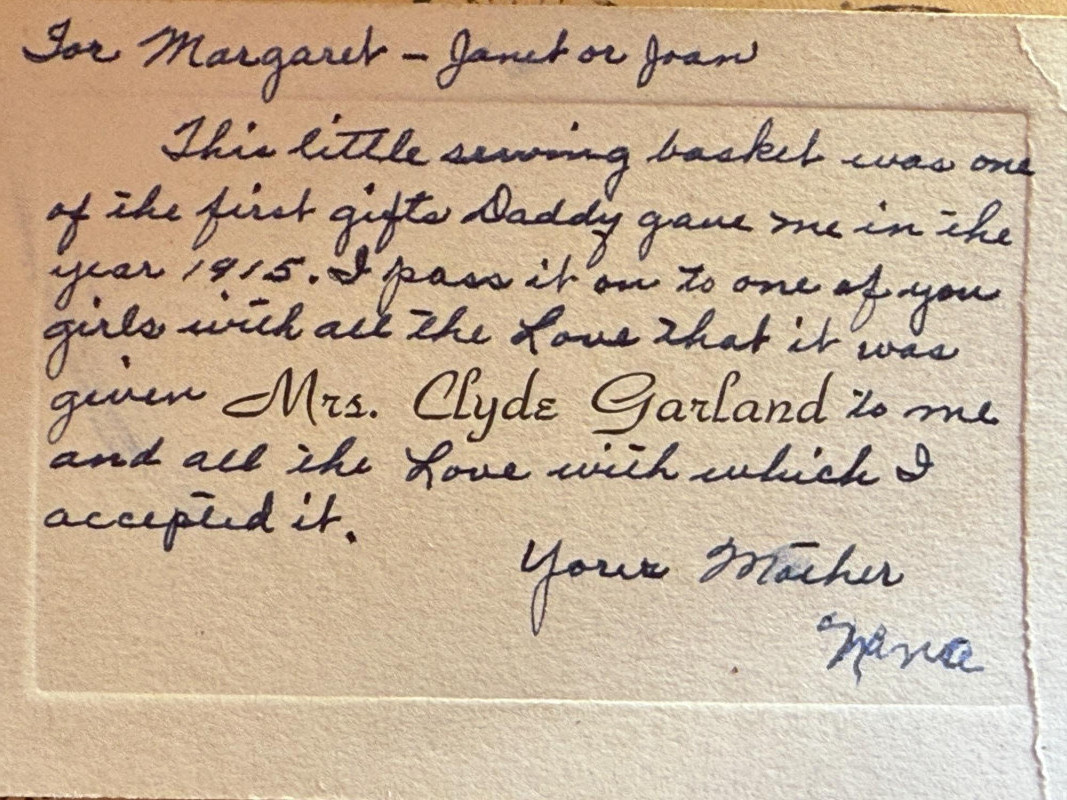 For Margaret - Janet or Joan
This little sewing basket was one
of the first gifts Daddy gave me in the
year 1915. I pass it on to one of you
girls with all the Love that it was
given Mrs. Clyde Garland to me
and all the Love with which I
accepted it.
Your Mother
Nana